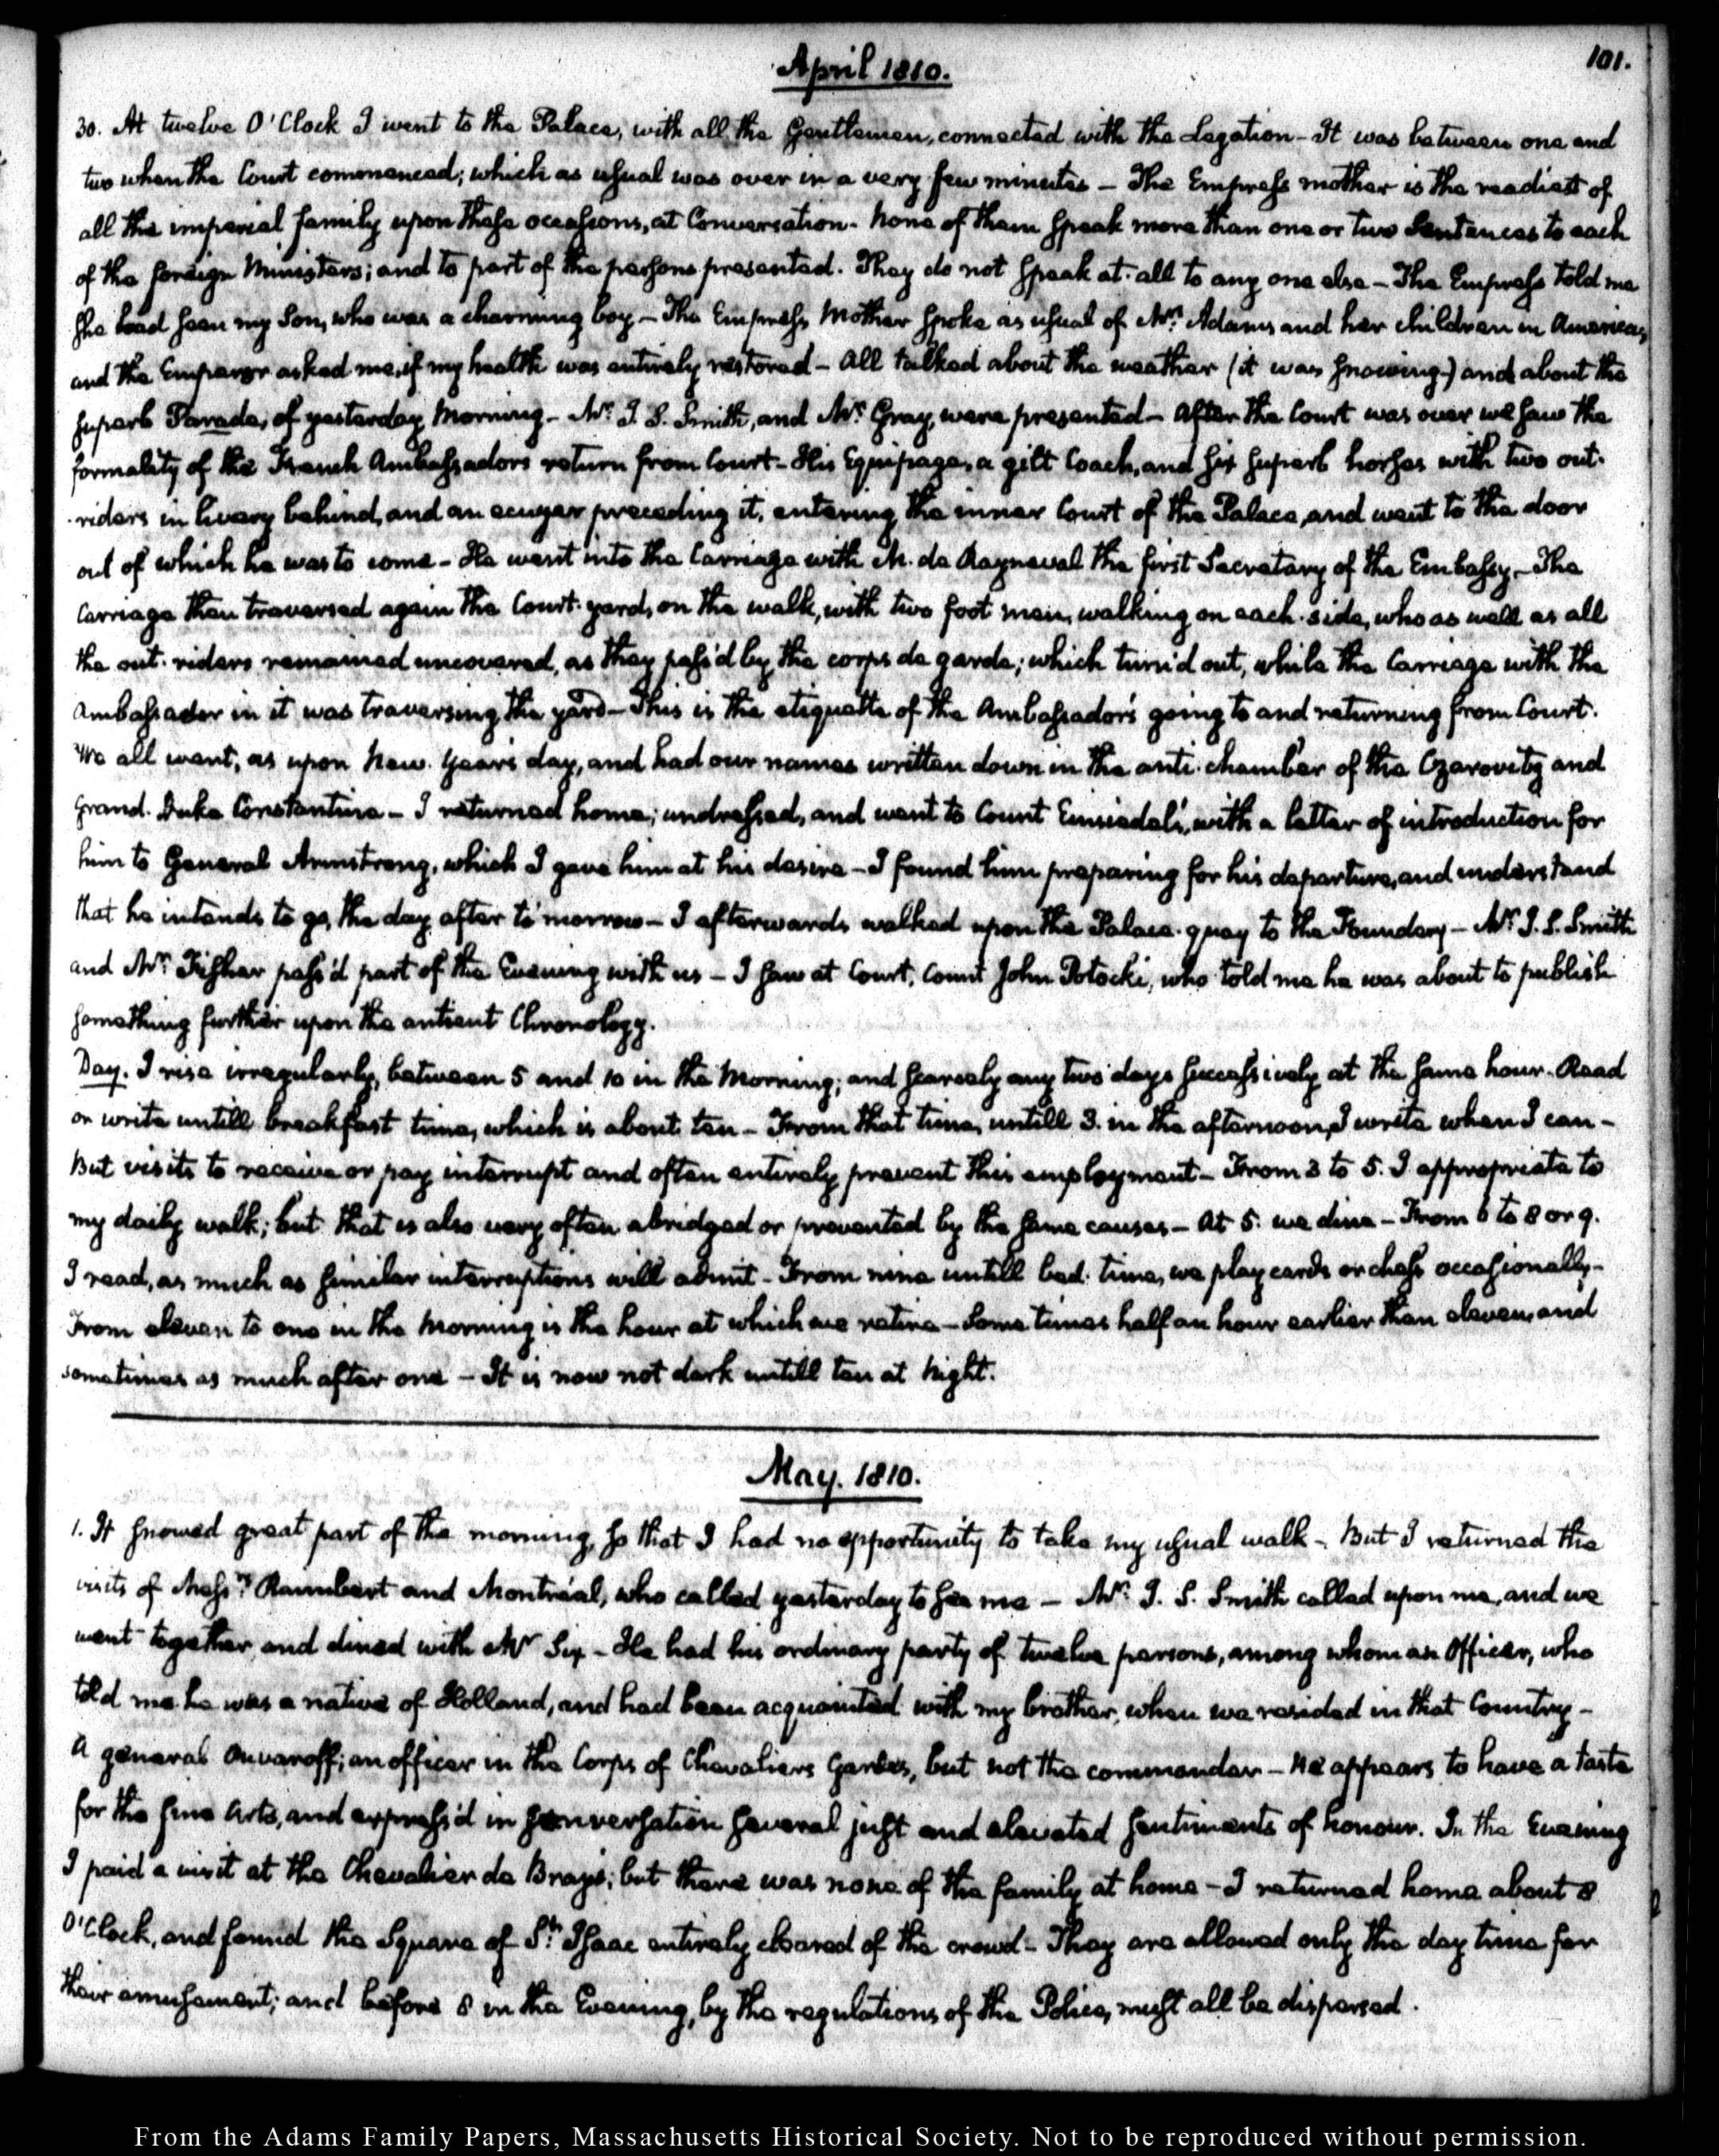 April 1810.
101.
30. At twelve O'Clock I went to the Palace, with all the Gentlemen, connected with the Legation - It was between one and
two when the Court commenced; which as usual was over in a very few minutes - The Empress mother is the readiest of
all the imperial family upon these occasions, at Conversation - None of them speak more than one or two Sentences to each
of the foreign Ministers; and to part of the persons presented. They do not speak at all to any one else - The Empress told me
She had seen my Son, who was a charming boy - The Empress Mother spoke as usual of Mrs. Adams, and her children in America,
and the Emperor asked me, if my health was entirely restored - All talked about the weather (it was snowing) and about the
superb Parade, of yesterday Morning - Mr. J. S. Smith, and Mr. Gray, were presented - After the Court was over we saw the
formality of the French Ambassadors return from Court - His Equipage, a gilt Coach, and six superb horses with two out-
riders in livery behind, and an ecuyer preceding it, entering the inner Court of the Palace, and went to the door
out of which he was to come - He went into the Carriage with M. de Rayneval the first Secretary of the Embassy - The
Carriage then traversed again the Court-yard, on the walk, with two foot men, walking on each side, who as well as all
the out-riders remained uncovered, as they pass'd by the corps de garde; which turn'd out, while the Carriage with the
Ambassador in it was traversing the yard - This is the etiquette of the Ambassador's going to and returning from Court.
We all went, as upon New-Year's day, and had our names written down in the anti-chamber of the Czarovitz and
Grand-Duke Constantine - I returned home; undressed, and went to Count Einsiedel's, with a letter of introduction for
him to General Armstrong, which I gave him at his desire - I found him preparing for his departure, and understand
that he intends to go, the day after to morrow - I afterwards walked upon the Palace-quay to the Foundery - Mr. J. S. Smith
and Mr. Fisher pass'd part of the Evening with us - I saw at Court, Count John Potocki, who told me he was about to publish
something further upon the antient Chronology.
Day. I rise irregularly, between 5 and 10 in the Morning; and scarcely any two days successively at the same hour. Read
or write untill breakfast time, which is about ten - From that time, untill 3. in the afternoon, I write when I can -
But visits to receive or pay interrupt and often entirely prevent this employment - From 3 to 5. I appropriate to
my daily walk; but that is also very often abridged or prevented by the same causes - At 5. we dine - From 6 to 8 or 9.
I read, as much as similar interruptions will admit - From nine untill bed-time, we play cards or chess occasionally -
From eleven to one in the Morning is the hour at which we retire - Sometimes half an hour earlier than eleven, and
sometimes as much after one - It is now not dark untill ten at Night.
May. 1810.
1. It snowed great part of the morning, so that I had no opportunity to take my usual walk - But I returned the
visits of Messrs. Raimbert and Montréal, who called yesterday to see me - Mr. J. S. Smith called upon me, and we
went together, and dined with Mr Six - He had his ordinary party of twelve persons, among whom an Officer, who
told me he was a native of Holland, and had been acquainted with my brother, when we resided in that Country -
A general Ouvaroff; an officer in the Corps of Chevaliers Gardes, but not the commander - He appears to have a taste
for the fine Arts, and express'd in conversation several just and elevated sentiments of honour. In the Evening
I paid a visit at the Chevalier de Bray's; but there was none of the family at home - I returned home about 8
O'Clock, and found the Square of St. Isaac entirely cleared of the crowd - They are allowed only the day time for
their amusement; and before 8 in the Evening, by the regulations of the Police, must all be dispersed.
From the Adams Family Papers, Massachusetts Historical Society. Not to be reproduced without permission.